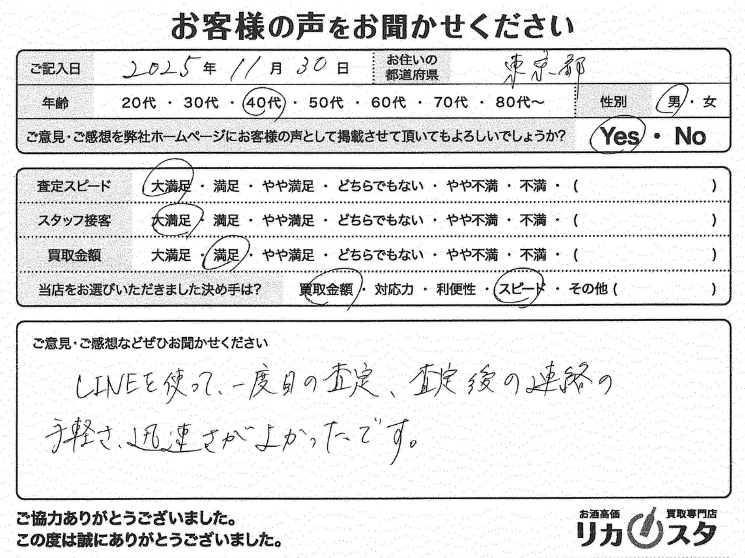 お客様の声をお聞かせください
ご記入日 2025年 11月 30日 お住いの都道府県 東京都
年齢 20代・30代・40代・50代・60代・70代・80代〜 性別 男・女
ご意見・ご感想を弊社ホームページにお客様の声として掲載させて頂いてもよろしいでしょうか? Yes・No
査定スピード 大満足・満足・やや満足・どちらでもない・やや不満・不満・( )
スタッフ接客 大満足・満足・やや満足・どちらでもない・やや不満・不満・( )
買取金額 大満足・満足・やや満足・どちらでもない・やや不満・不満・( )
当店をお選びいただきました決め手は? 買取金額・対応力・利便性・スピード・その他( )
ご意見・ご感想などぜひお聞かせください
LINEを使って、一度目の査定、査定後の連絡の
手軽さ、迅速さがよかったです。
ご協力ありがとうございました。
この度は誠にありがとうございました。
お酒高価 買取専門店
リカスタ